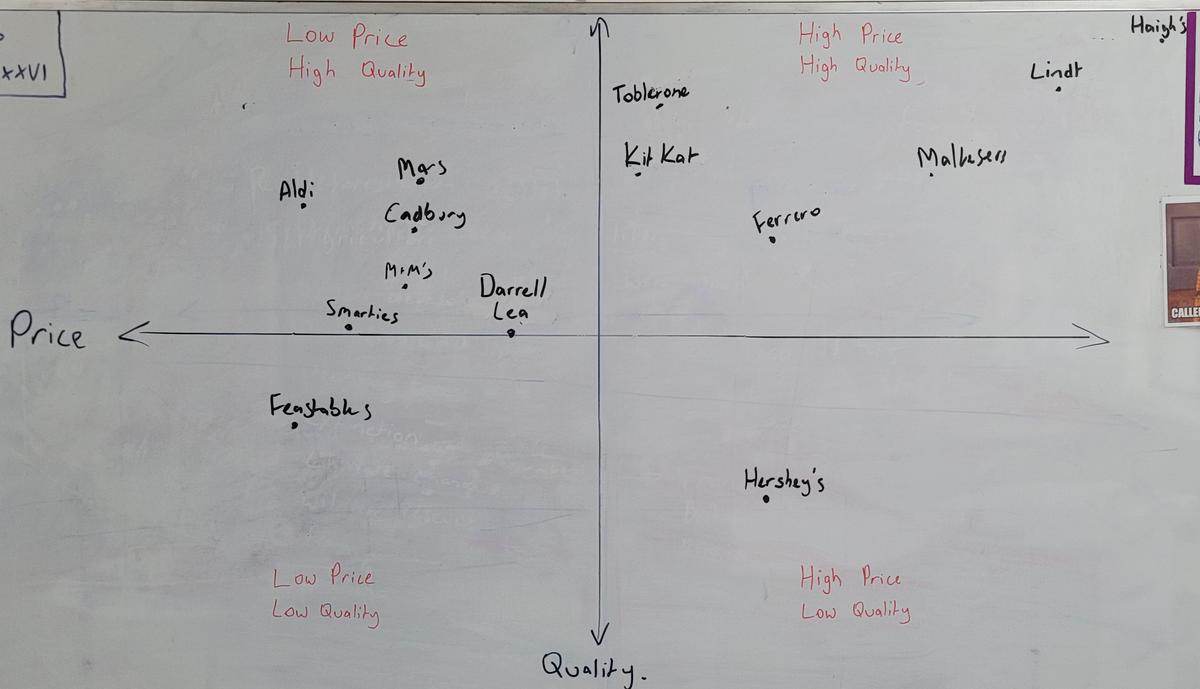 XXVI
Low Price
High Quality
High Price
High Quality
Haigh's
Lindt
Toblerone
Kit Kat
Maltesers
Mars
Aldi
Cadbury
Ferrero
M+M's
Darrell
Lea
Smarties
Price
CALLE
Feastables
Hershey's
Low Price
Low Quality
High Price
Low Quality
Quality.